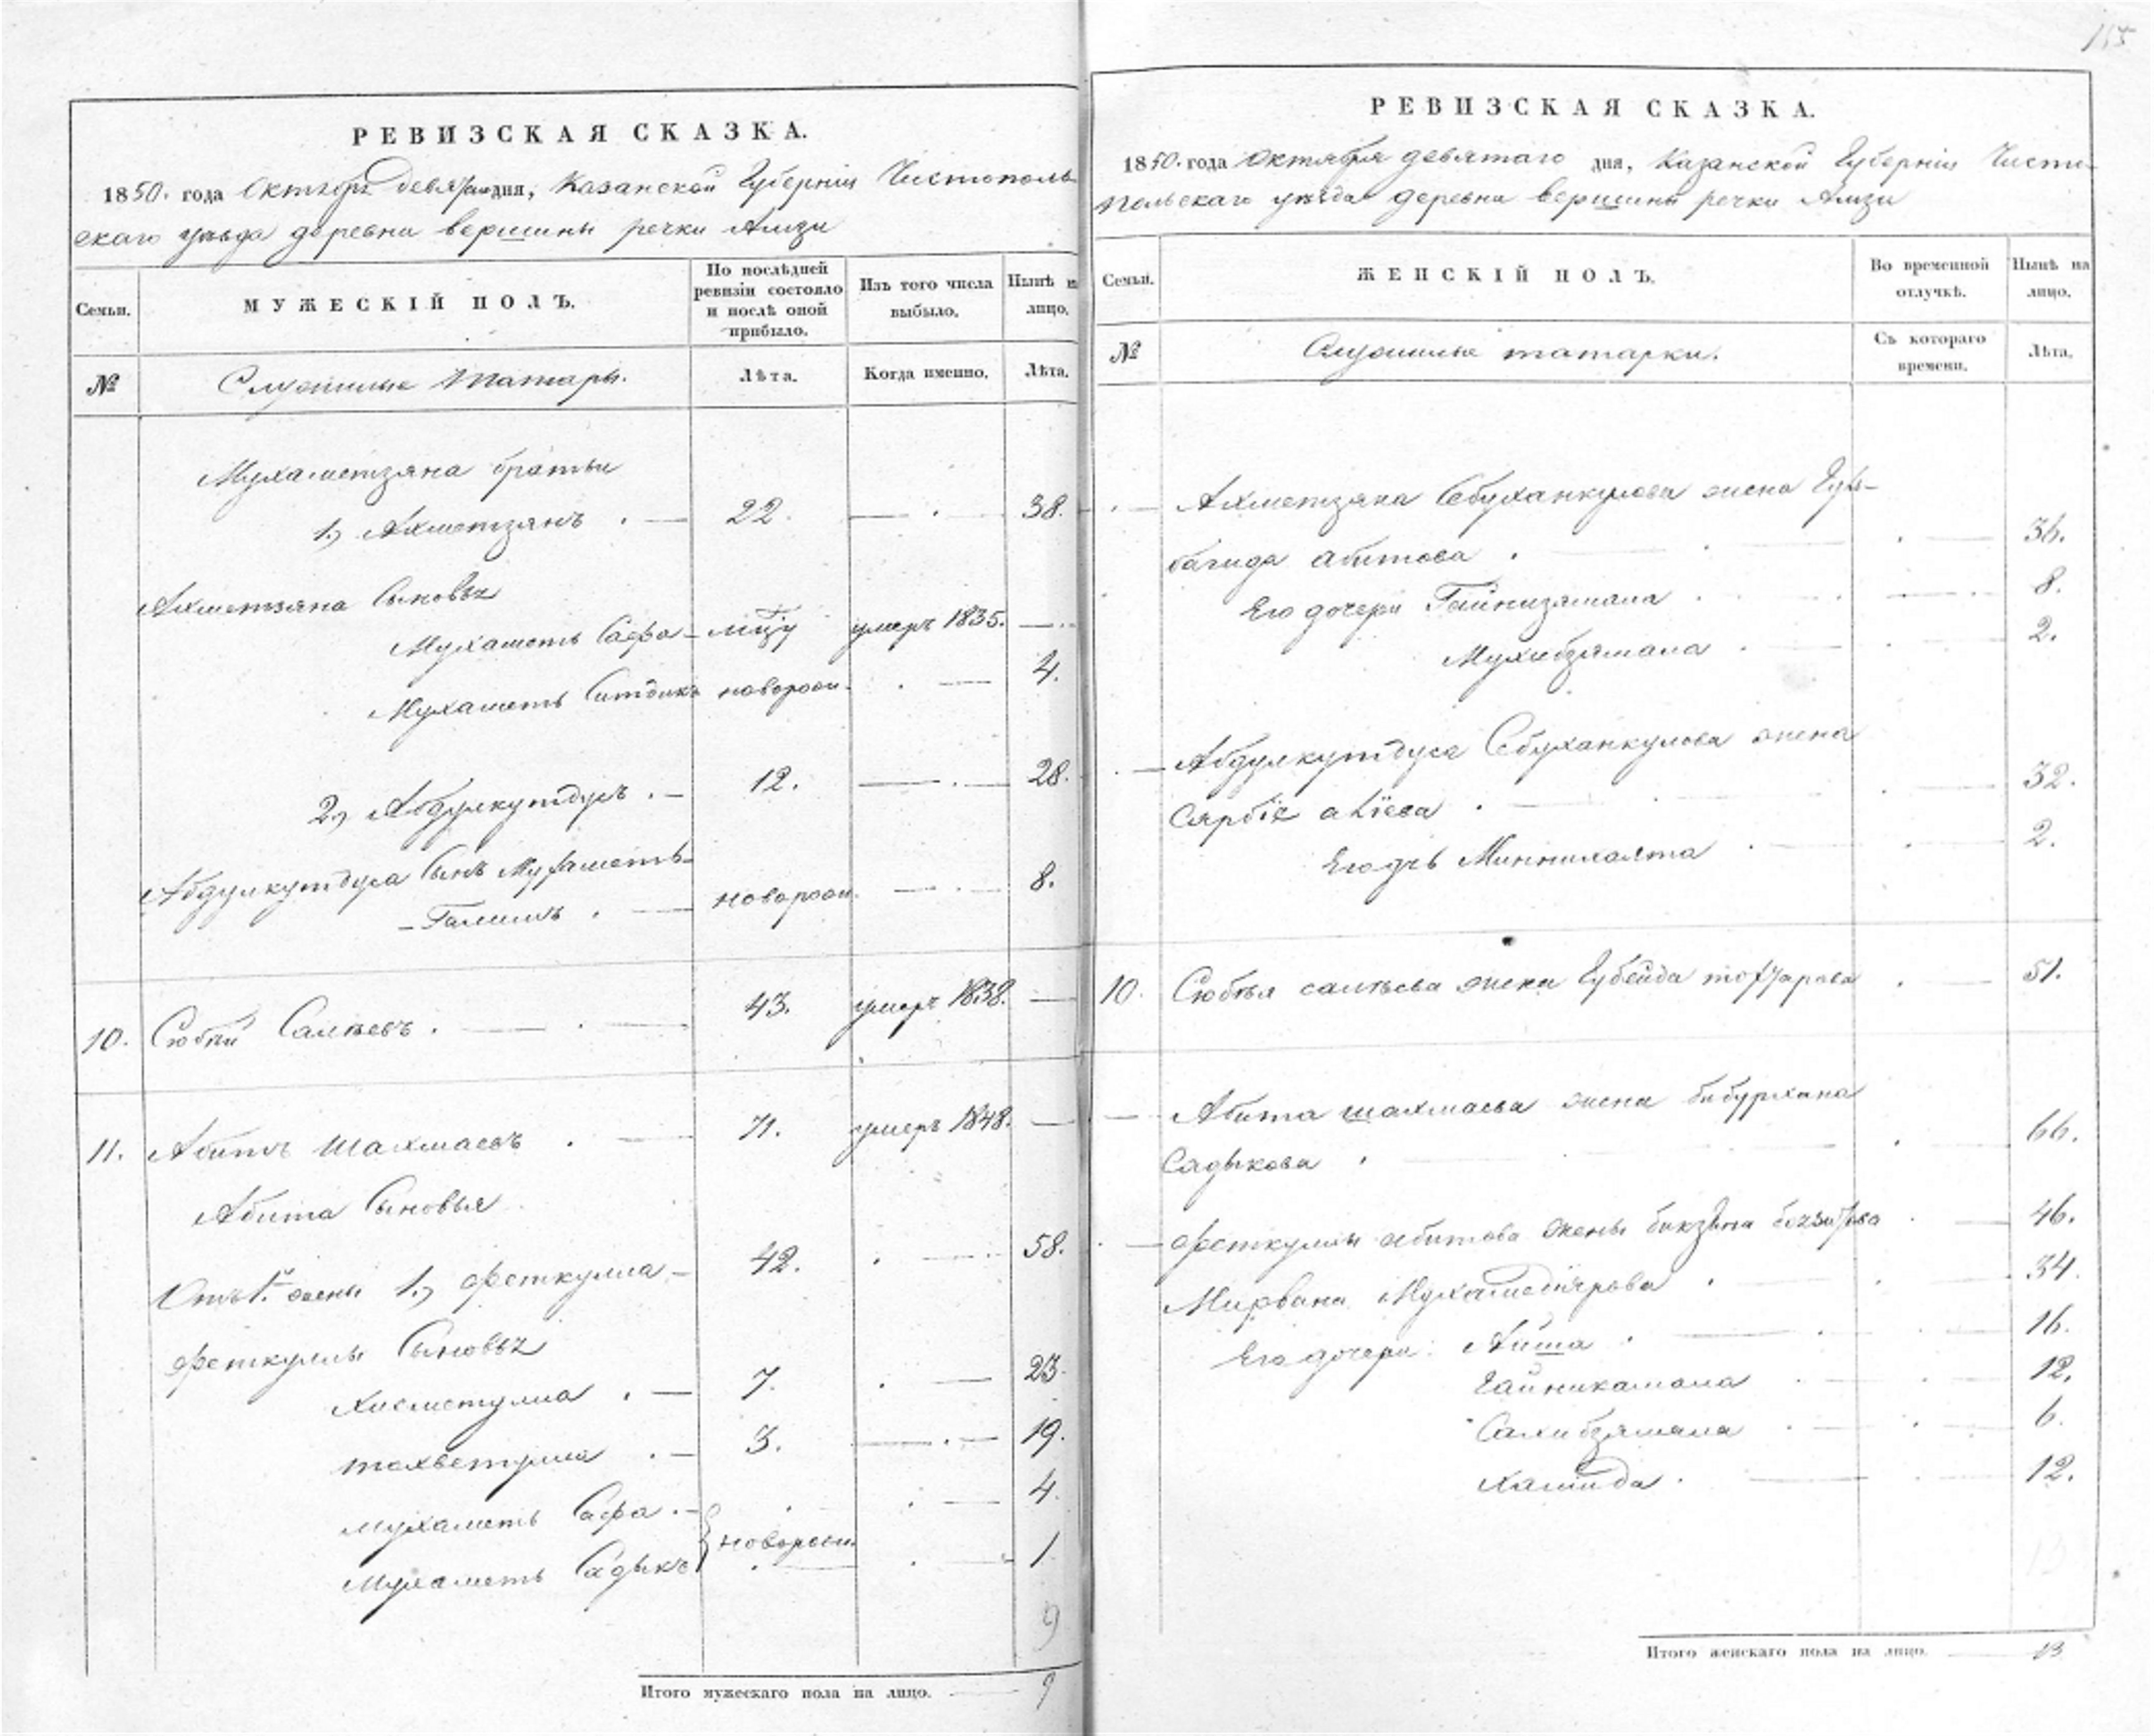 155
РЕВИЗСКАЯ СКАЗКА.
1850. года Октября девятаго дня, Казанской Губерніи Чистополь
скаго уѣзда деревни вершины речки Амзи
Семьи.
МУЖЕСКІЙ ПОЛЪ.
По послѣдней ревизіи состояло и послѣ оной прибыло.
Изъ того числа выбыло.
Нынѣ на лицо.
№
Служилые татары.
Лѣта.
Когда именно.
Лѣта.
Мухаметзяна братьи
1, Ахметзянъ . — 22. — . — 38.
Ахметзяна Сыновья
Мухаметь Сафа — умеръ 1835. —
Мухаметь Ситдикъ новорож. . — 4.
2, Абдулкутдусъ . — 12. — . — 28.
Абдулкутдуса Сынъ Мухаметь-
-Галимъ . — новорож. — . — 8.
10. Сюбѣй Салѣевъ . — . — 43. умеръ 1838. —
11. Абитъ Шахмаевъ . — 71. умеръ 1848. —
Абита Сыновья
Отъ 1й жены 1, Феткулла — 42. . — 58.
Феткуллы Сыновья
Хисметулла . — 7. . — 23.
Тохветулла . — 3. — . — 19.
Мухаметь Сафа . — . . — 4.
новорож.
Мухаметь Садыкъ . — . — 1.
9
Итого мужескаго пола на лицо. — 9
РЕВИЗСКАЯ СКАЗКА.
1850. года Октября девятаго дня, Казанской Губерніи Чисто-
польскаго уѣзда деревни вершины речки Амзи
Семьи.
ЖЕНСКІЙ ПОЛЪ.
Во временной отлучкѣ.
Нынѣ на лицо.
№
Служилые татарки.
Съ котораго времени.
Лѣта.
Ахметзяна Сбуханкулова жена Гуль-
багида Абитова . — . — 36.
Его дочери Гайнизямала . — 8.
Мухибзямала . — 2.
Абдулкутдуса Сбуханкулова жена
Сярбія Аліева . — . — 32.
Его дчь Миннихаята . — 2.
10. Сюбѣя Салѣева жена Губейда . — 51.
— Абита Шахмаева жена Бибурхана
Садыкова . — . — 66.
— Феткуллы Абитова жены . — 46.
Мирвана Мухамедіярова . — 34.
Его дочери: Айша . — 16.
Гайникамала . — 12.
Сахибзямала . — 6.
Хамида . — 12.
13
Итого женскаго пола на лицо. — 13